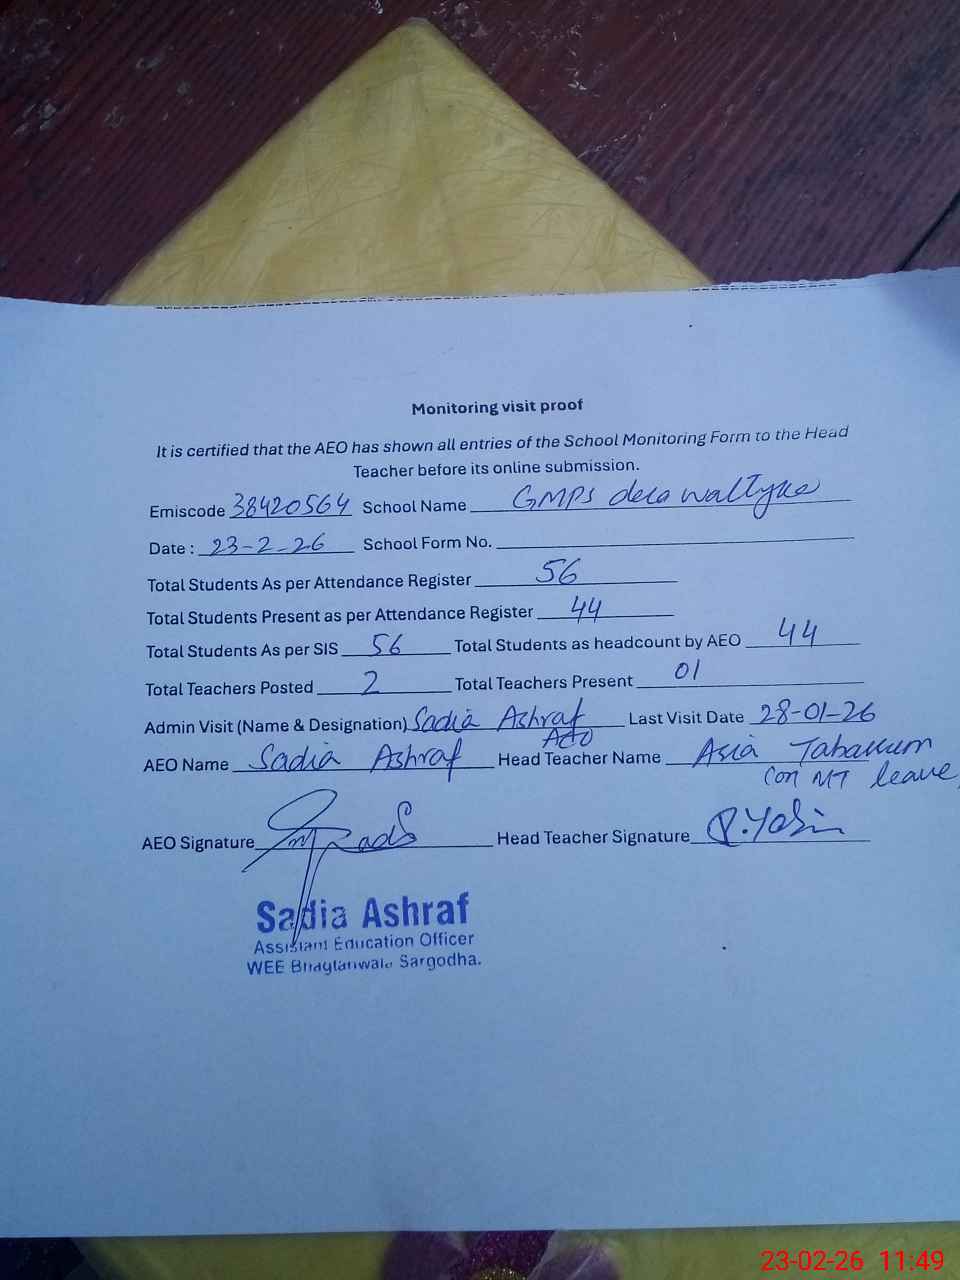 Monitoring visit proof
It is certified that the AEO has shown all entries of the School Monitoring Form to the Head
Teacher before its online submission.
Emiscode 38420564 School Name GMPS dera
Date : 23-2-26 School Form No.
Total Students As per Attendance Register 56
Total Students Present as per Attendance Register 44
Total Students As per SIS 56 Total Students as headcount by AEO 44
Total Teachers Posted 2 Total Teachers Present 01
Admin Visit (Name & Designation) Sadia Ashraf Last Visit Date 28-01-26
AEO
AEO Name Sadia Ashraf Head Teacher Name Asia
leave
AEO Signature Head Teacher Signature
Sadia Ashraf
Assistant Education Officer
WEE Bhagtanwala Sargodha.
23-02-26 11:49